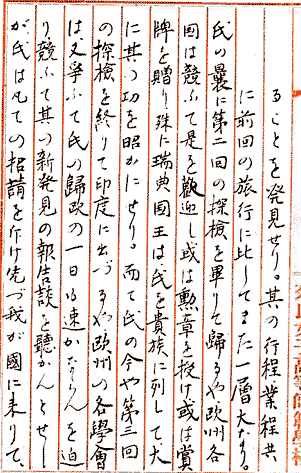 ることを発見せり。其の行程業程共
に前回の旅行に比してまた一層大なり。
氏の曩に第二回の探検を畢りて歸るや欧洲各
国は競ふて是を歓迎し或は勲章を授け或は賞
牌を贈り殊に瑞典國王は氏を貴族に列して大
に其の功を昭かにせり。而て氏の今や第三回
の探検を終りて印度に出づるや欧州の各學會
は又爭ふて氏の歸欧の一日も速かならんを迫
り、競ふて其の新発見の報告談を聽かんとせし
が氏は凡ての招請を斥け先づ我が國に来りて、